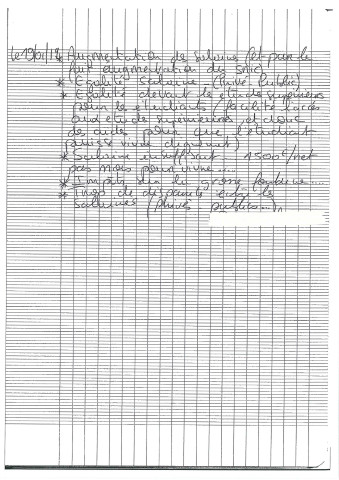 le 19/01/19 * Augmentation de salaire (et pas le
augmentation du smic)
* Egalité salaire (Privé - Public)
* Egalité devant les études supérieures
pour les étudiants / facilité l'accès
aux études supérieures et donc
des aides pour que l'étudiant
puisse vivre dignement)
* Salaire insuffisant - 1500€/net
par mois pour vivre....
* Impôts sur la grosse fortune....
* Trop de disparité entre les
salaires (Privés publics...)